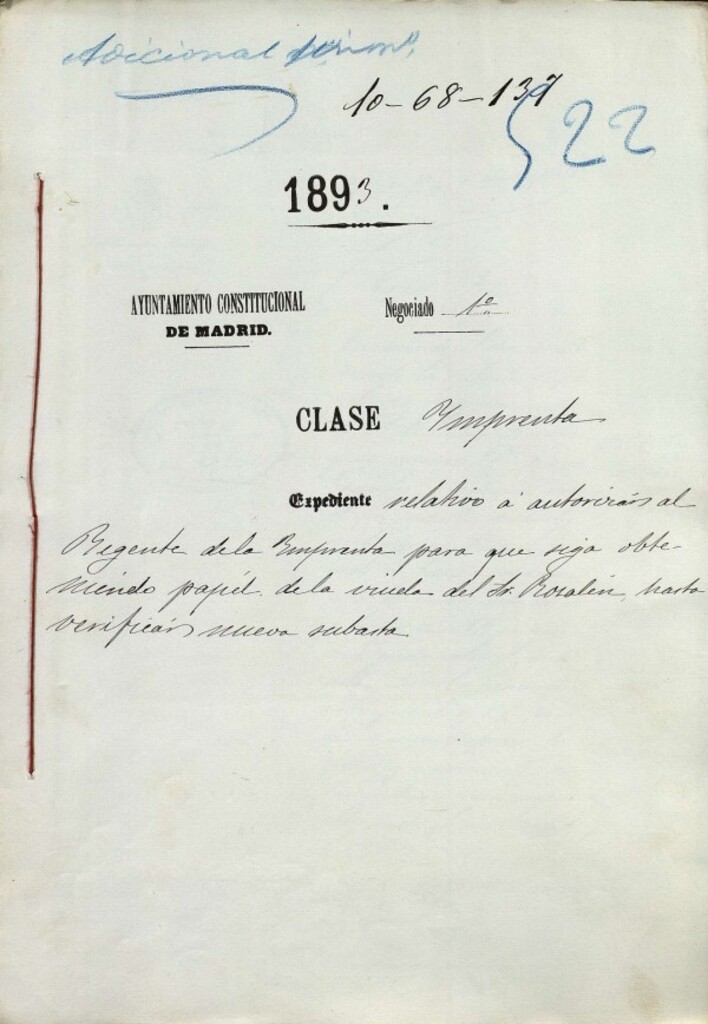 Adicional
10-68-137
522
1893.
AYUNTAMIENTO CONSTITUCIONAL
DE MADRID.
Negociado 1º
CLASE Ymprenta
Expediente relativo á autorizar al
Regente de la Imprenta para que siga obte-
niendo papel de la viuda del Sr. Rosalen, hasta
verificar nueva subasta